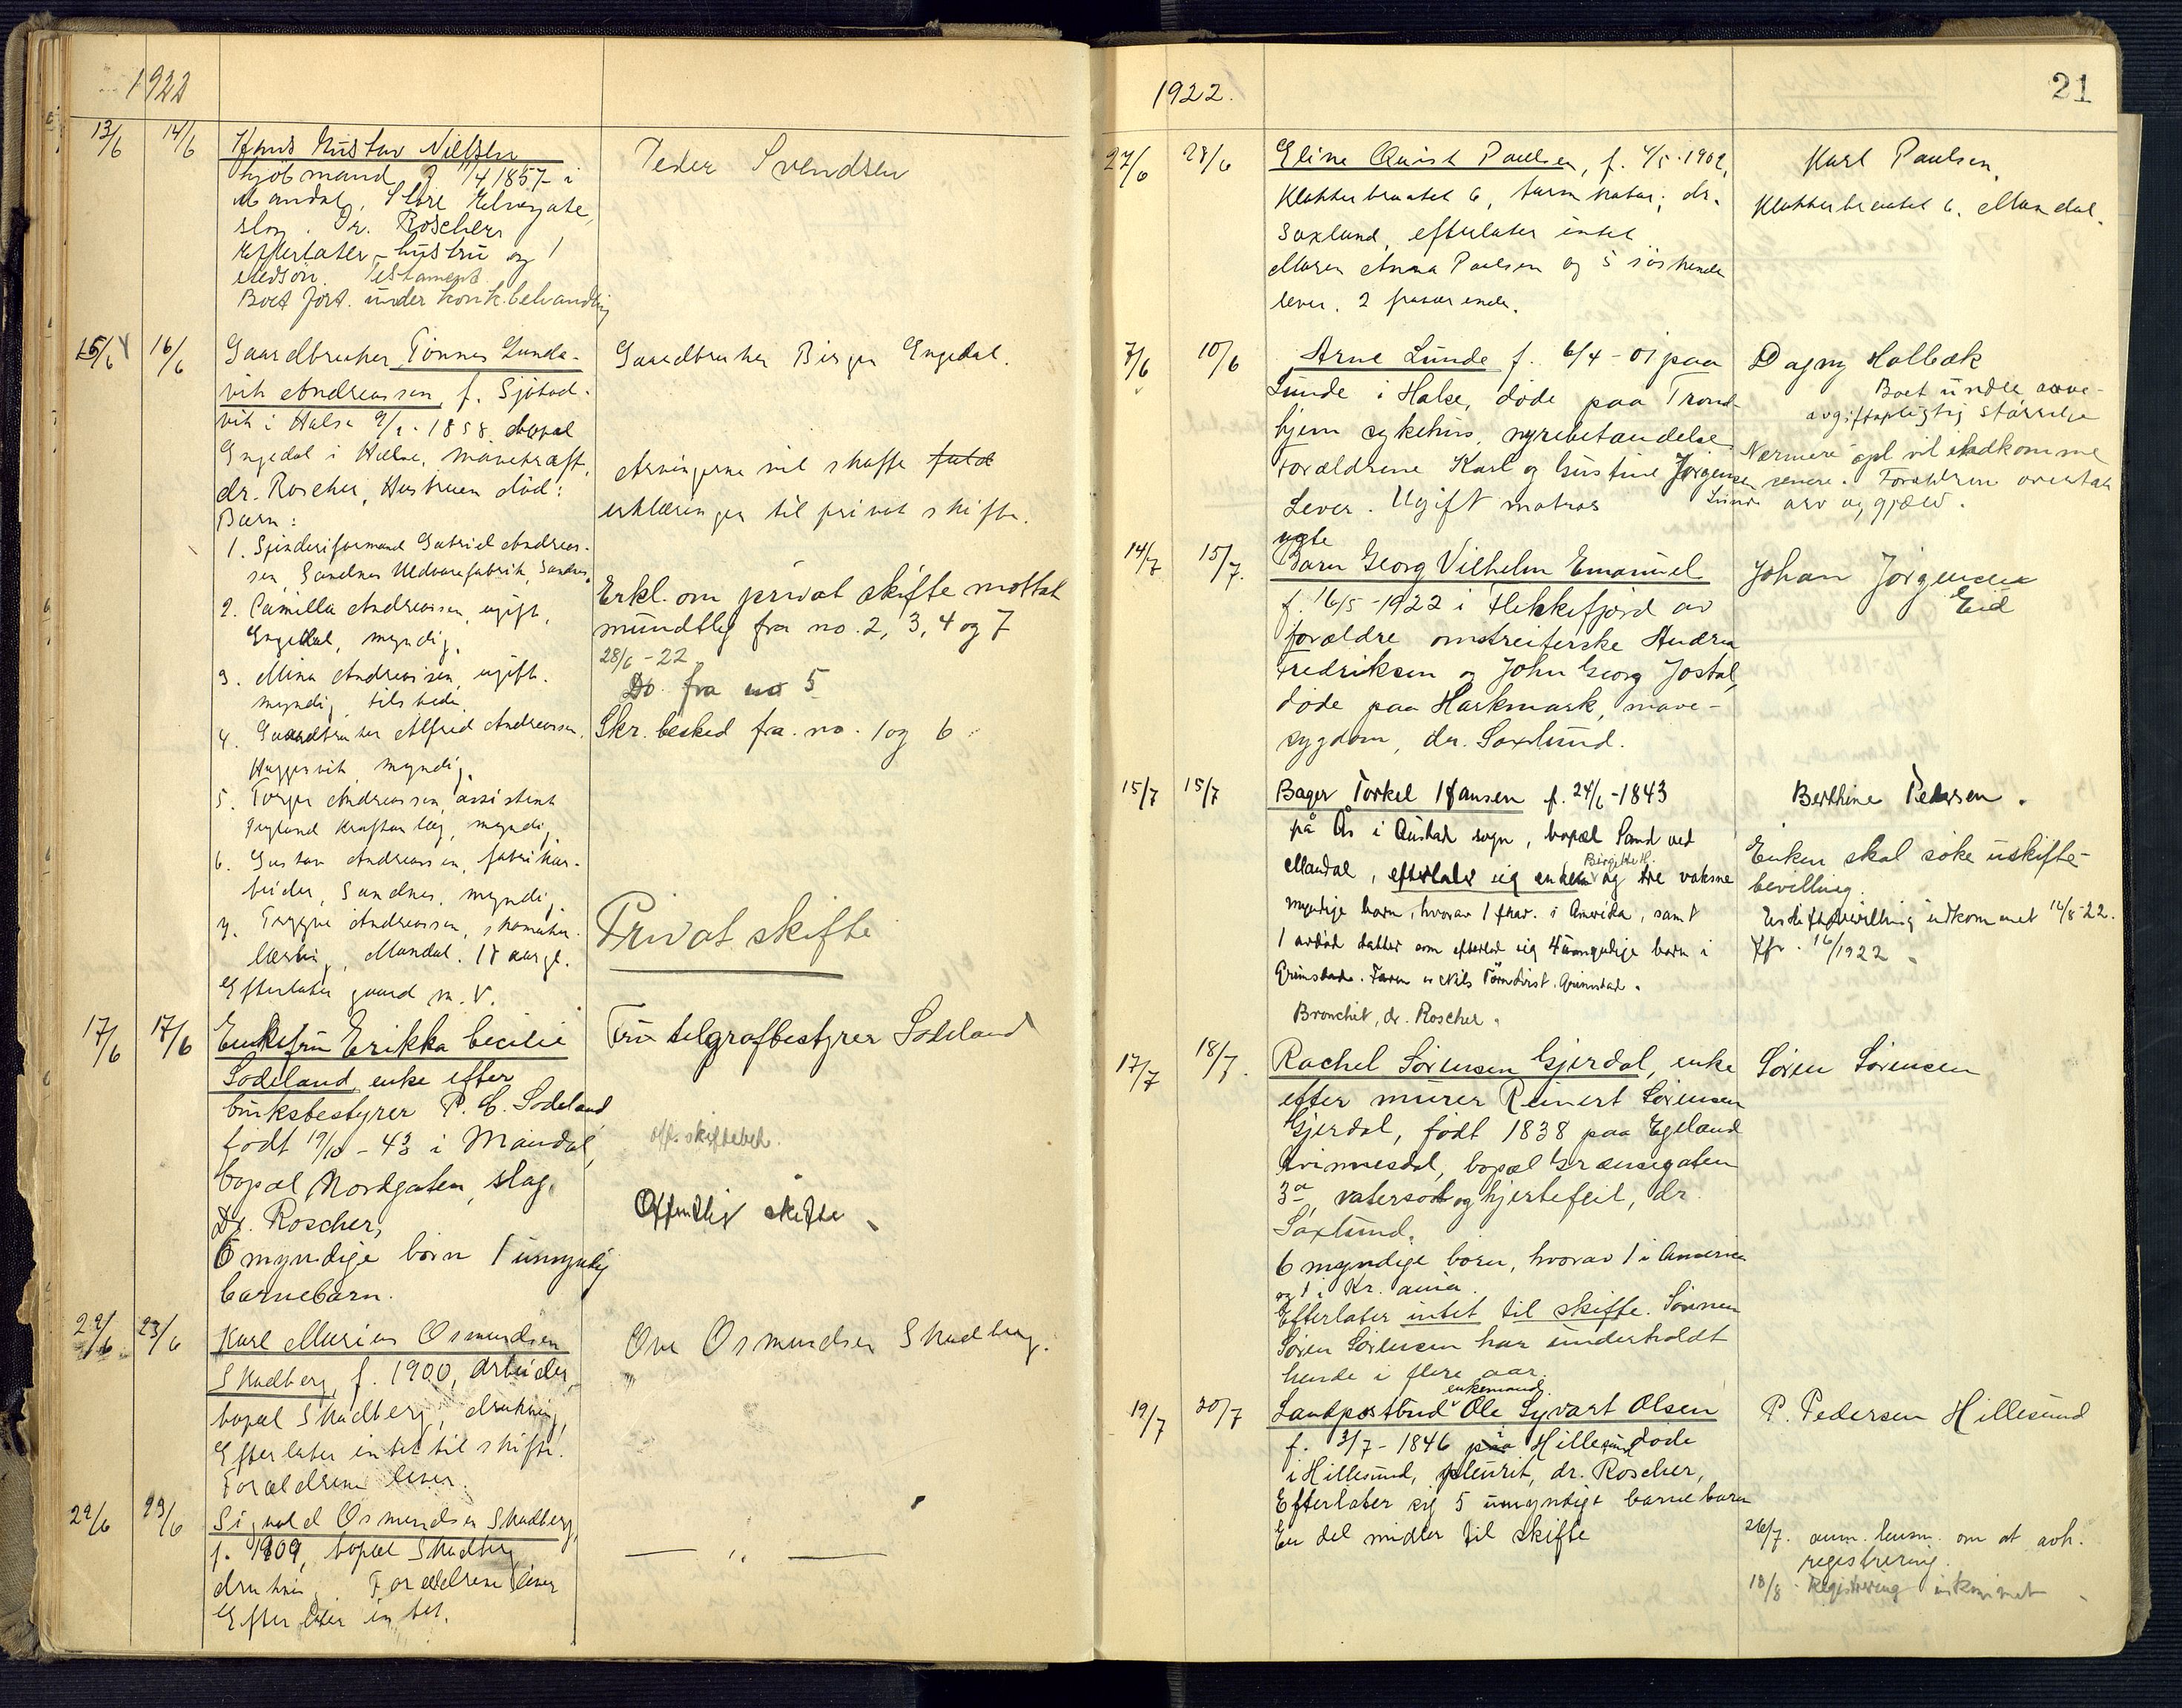 1922
13/6 14/6 Hans Gustav Nielsen
kjöbmand f 11/4 1857 i
Mandal, Store Elvegate,
slag. Dr. Roscher
Efterlater hustru og 1
Testament
Boet fort. under konk.behandling
Peder Svendsen
15/6 16/6 Gaardbruker Tönnes Lunde-
vik Andreassen, f. Sjöstad-
vik i Halse 9/2 - 1858. bopæl
Engedal i Halse, mavekræft,
dr. Roscher, Hustruen död:
Barn:
1. Spinderiformand Gabriel Andreas-
sen, Sandnes Uldvarefabrik, Sandnes.
2. Camilla Andreassen, ugift,
Engedal, myndig.
3. Mina Andreassen, ugift.
myndig tilstede.
4. Gaardbruker Alfred Andreassen,
myndig.
5. Torger Andreassen, assistent
myndig,
6. Gustav Andreassen, fabrikar-
beider, Sandnes, myndig.
7. Trygve Andreassen,
Mandal. 18 aar gl.
Efterlater gaard m. v.
Gaardbruker Birger Engedal.
Arvingerne vil skaffe fuld
erklæringer til privat skifte.
Erkl. om privat skifte mottat
mundtlig fra no. 2, 3, 4 og 7
28/6 - 22
Do. fra no 5
Skr. besked fra no. 1 og 6
Privat skifte
17/6 17/6 Enkefru Erikka Cecilie
Sodeland, enke efter
bruksbestyrer P. C. Sodeland,
födt 19/10 - 43 i Mandal,
bopæl Nordgaten, slag.
Dr. Roscher,
6 myndige börn 1 umyndig
barnebarn.
Fru telgrafbestyrer Sodeland
off. skiftebeh.
Offentlig skifte
22/6 23/6 Karl Marius Osmundsen
Skadberg, f. 1900, arbeider,
bopæl Skadberg, drukning,
Efterlater intet til skifte.
Forældrene lever.
Ove Osmundsen Skadberg.
22/6 23/6 Sigvald Osmundsen Skadberg,
f. 1909, bopæl Skadberg
drukning Forældrene lever
Efterlater intet.
— " —
1922.
21
27/6 28/6 Eline Quist Paulsen, f. 4/5 - 1902,
6, tarmkatar, dr.
Saxlund, efterlater intet
Maren Anna Paulsen og 5 söskende
lever. 2 fraværende.
Karl Paulsen,
6. Mandal.
7/6 10/6 Arne Lunde f. 6/4 - 01 paa
Lunde i Halse, döde paa Trond-
hjem sykehus, nyrebetændelse
Forældrene Karl og Gustine Jörgensen
Lunde
Lever. Ugift matros
Dagny Holbæk
Boet under arve-
avgiftspligtig störrelse
Nærmere opl vil indkomme
senere. Forældrene overtar
arv og gjæld.
14/7 15/7. ugte
Barn Georg Vilhelm Emanuel
f. 16/5 - 1922 i Flekkefjord av
forældre omstreiferske Andrea
Fredriksen og John Georg Jostal,
döde paa Harkmark, mave-
sygdom, dr. Saxlund.
Johan Jörgensen
Eid
15/7 15/7 Bager Torkel Hansen f. 24/6 - 1843
på Ås i Austad sogn, bopæl Sand ved
Birgitte H.
Mandal, efterlater sig enken og tre voksne
myndige barn, hvorav 1 frav. i Amerika, samt
1 avdöd datter som efterlod sig 4 umyndige barn i
Grimstad. Faren er Nils Törnkvist. Grimstad.
Bronchit, dr. Roscher.
Berthine Pedersen.
Enken skal söke uskifte-
bevilling.
Uskiftebevilling utkommet 16/8 22.
Jfr. 16/1922
17/7 18/7. Rachel Sörensen Gjerdal, enke
efter murer Reinert Sörensen
Gjerdal, födt 1838 paa Egeland
Kvinnesdal, bopæl Grænsegaten
3a, vatersot og hjertefeil, dr.
Saxlund.
6 myndige born, hvorav 1 i Amerika
og 1 i Kr.ania.
Efterlater intet til skifte. Sönnen
Sören Sörensen har underholdt
hende i flere aar.
Sören Sörensen
19/7 20/7 enkemand
Landpostbud Ole Syvart Olsen
f. 3/7 - 1846 paa Hillesund döde
i Hillesund, pleurit, dr. Roscher,
Efterlater sig 5 umyndige barnebarn
En del midler til skifte
P. Pedersen Hillesund
26/7. anm. lensm. om at avh.
registrering.
18/8 - Registrering inkommet